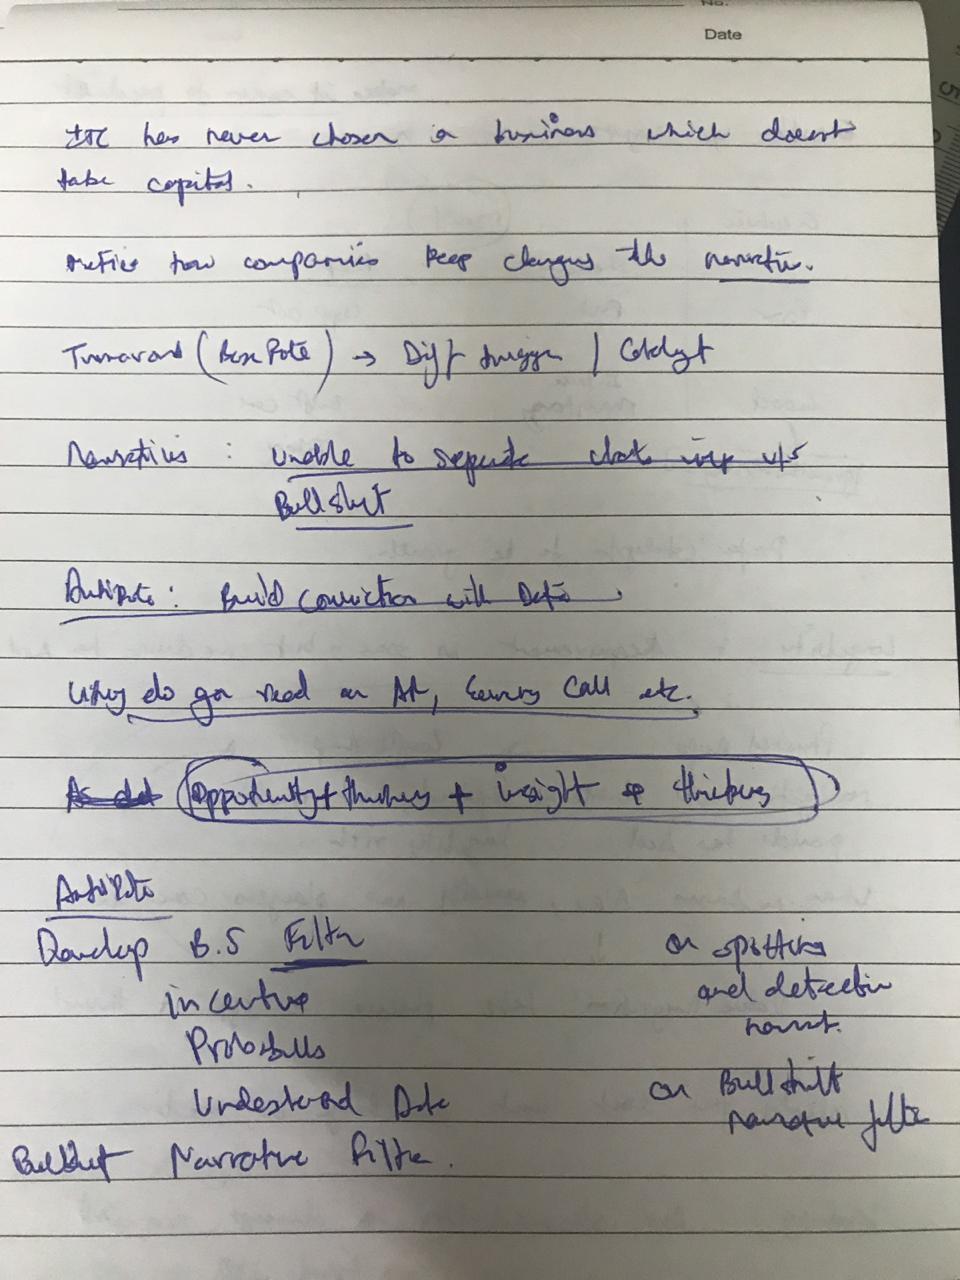 No.
Date
ITC has never chosen a business which doesnt
take capital.
Notice how companies keep changing the narrative.
Turnaround (Base Rate) → Diff trigger / Catalyst
Narratives : Unable to separate v/s
Bullshit
Antidote : Build Conviction with Data
Why do you read an AR, Earnings Call etc.
opportunity thinking + insight thinking
Antidote
Develop B.S Filter
incentive
Probabilis
Understand Data
Bullshit Narrative Filter.
or spotting
and detection
narrat.
or Bullshitt
narrative filter